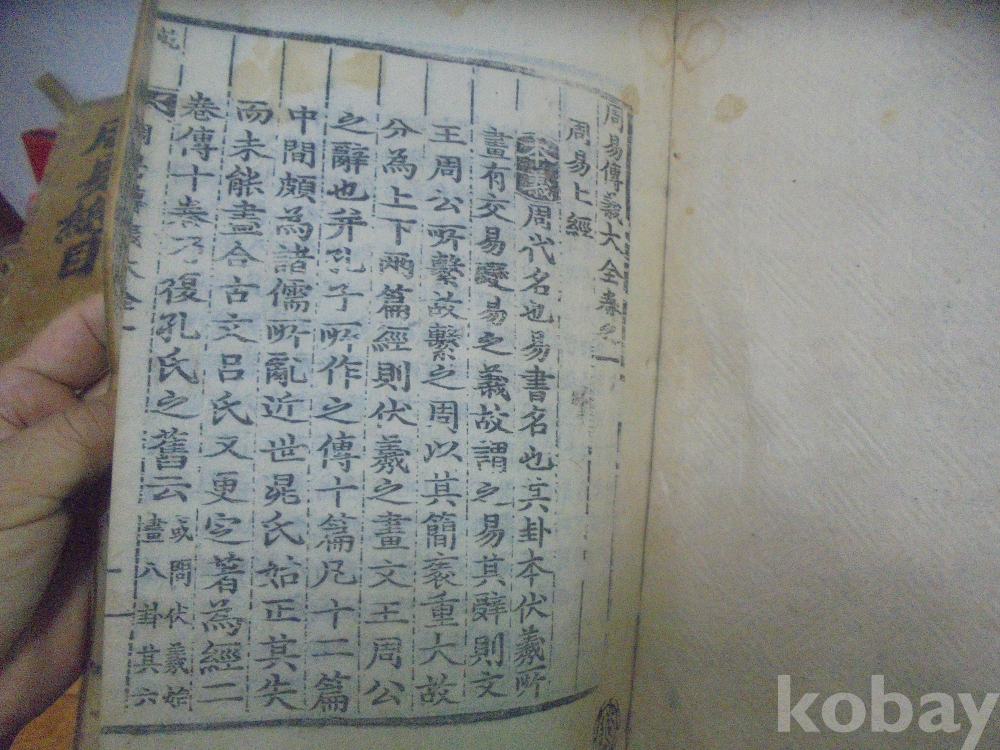 周易傳義大全卷之一
周易上經
本義周代名也易書名也其卦本伏羲所
畫有交易變易之義故謂之易其辭則文
王周公所繫故繫之周以其簡袠重大故
分為上下兩篇經則伏羲之畫文王周公
之辭也并孔子所作之傳十篇凡十二篇
中間頗為諸儒所亂近世晁氏始正其失
而未能盡合古文呂氏又更定著為經二
卷傳十卷乃復孔氏之舊云
或問伏羲始
畫八卦其六
周易
kobay